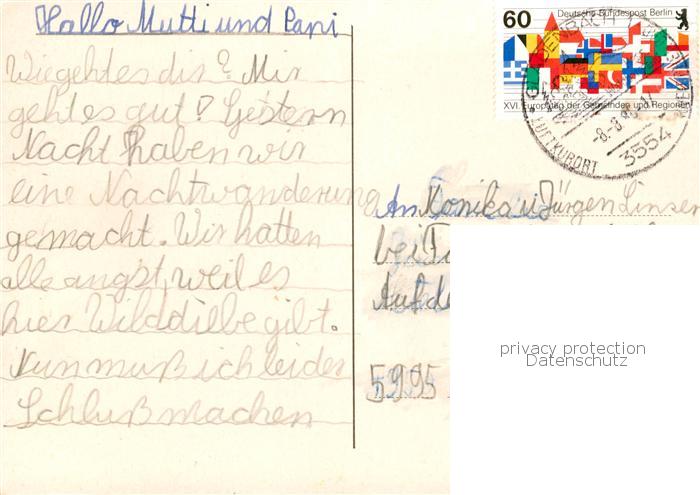 Hallo Mutti und Papi
Wie geht es dir? Mir
geht es gut! Gestern
Nacht haben wir
eine Nachtwanderung
gemacht. Wir hatten
alle angst, weil es
hier Wilddiebe gibt.
Nun muß ich leider
Schluß machen
60 Deutsche Bundespost Berlin
XVI. Europatag der Gemeinden und Regionen
LUFTKURORT
3554
An Monika u. Jürgen Linsen
bei
Auf de
5995
privacy protection
Datenschutz